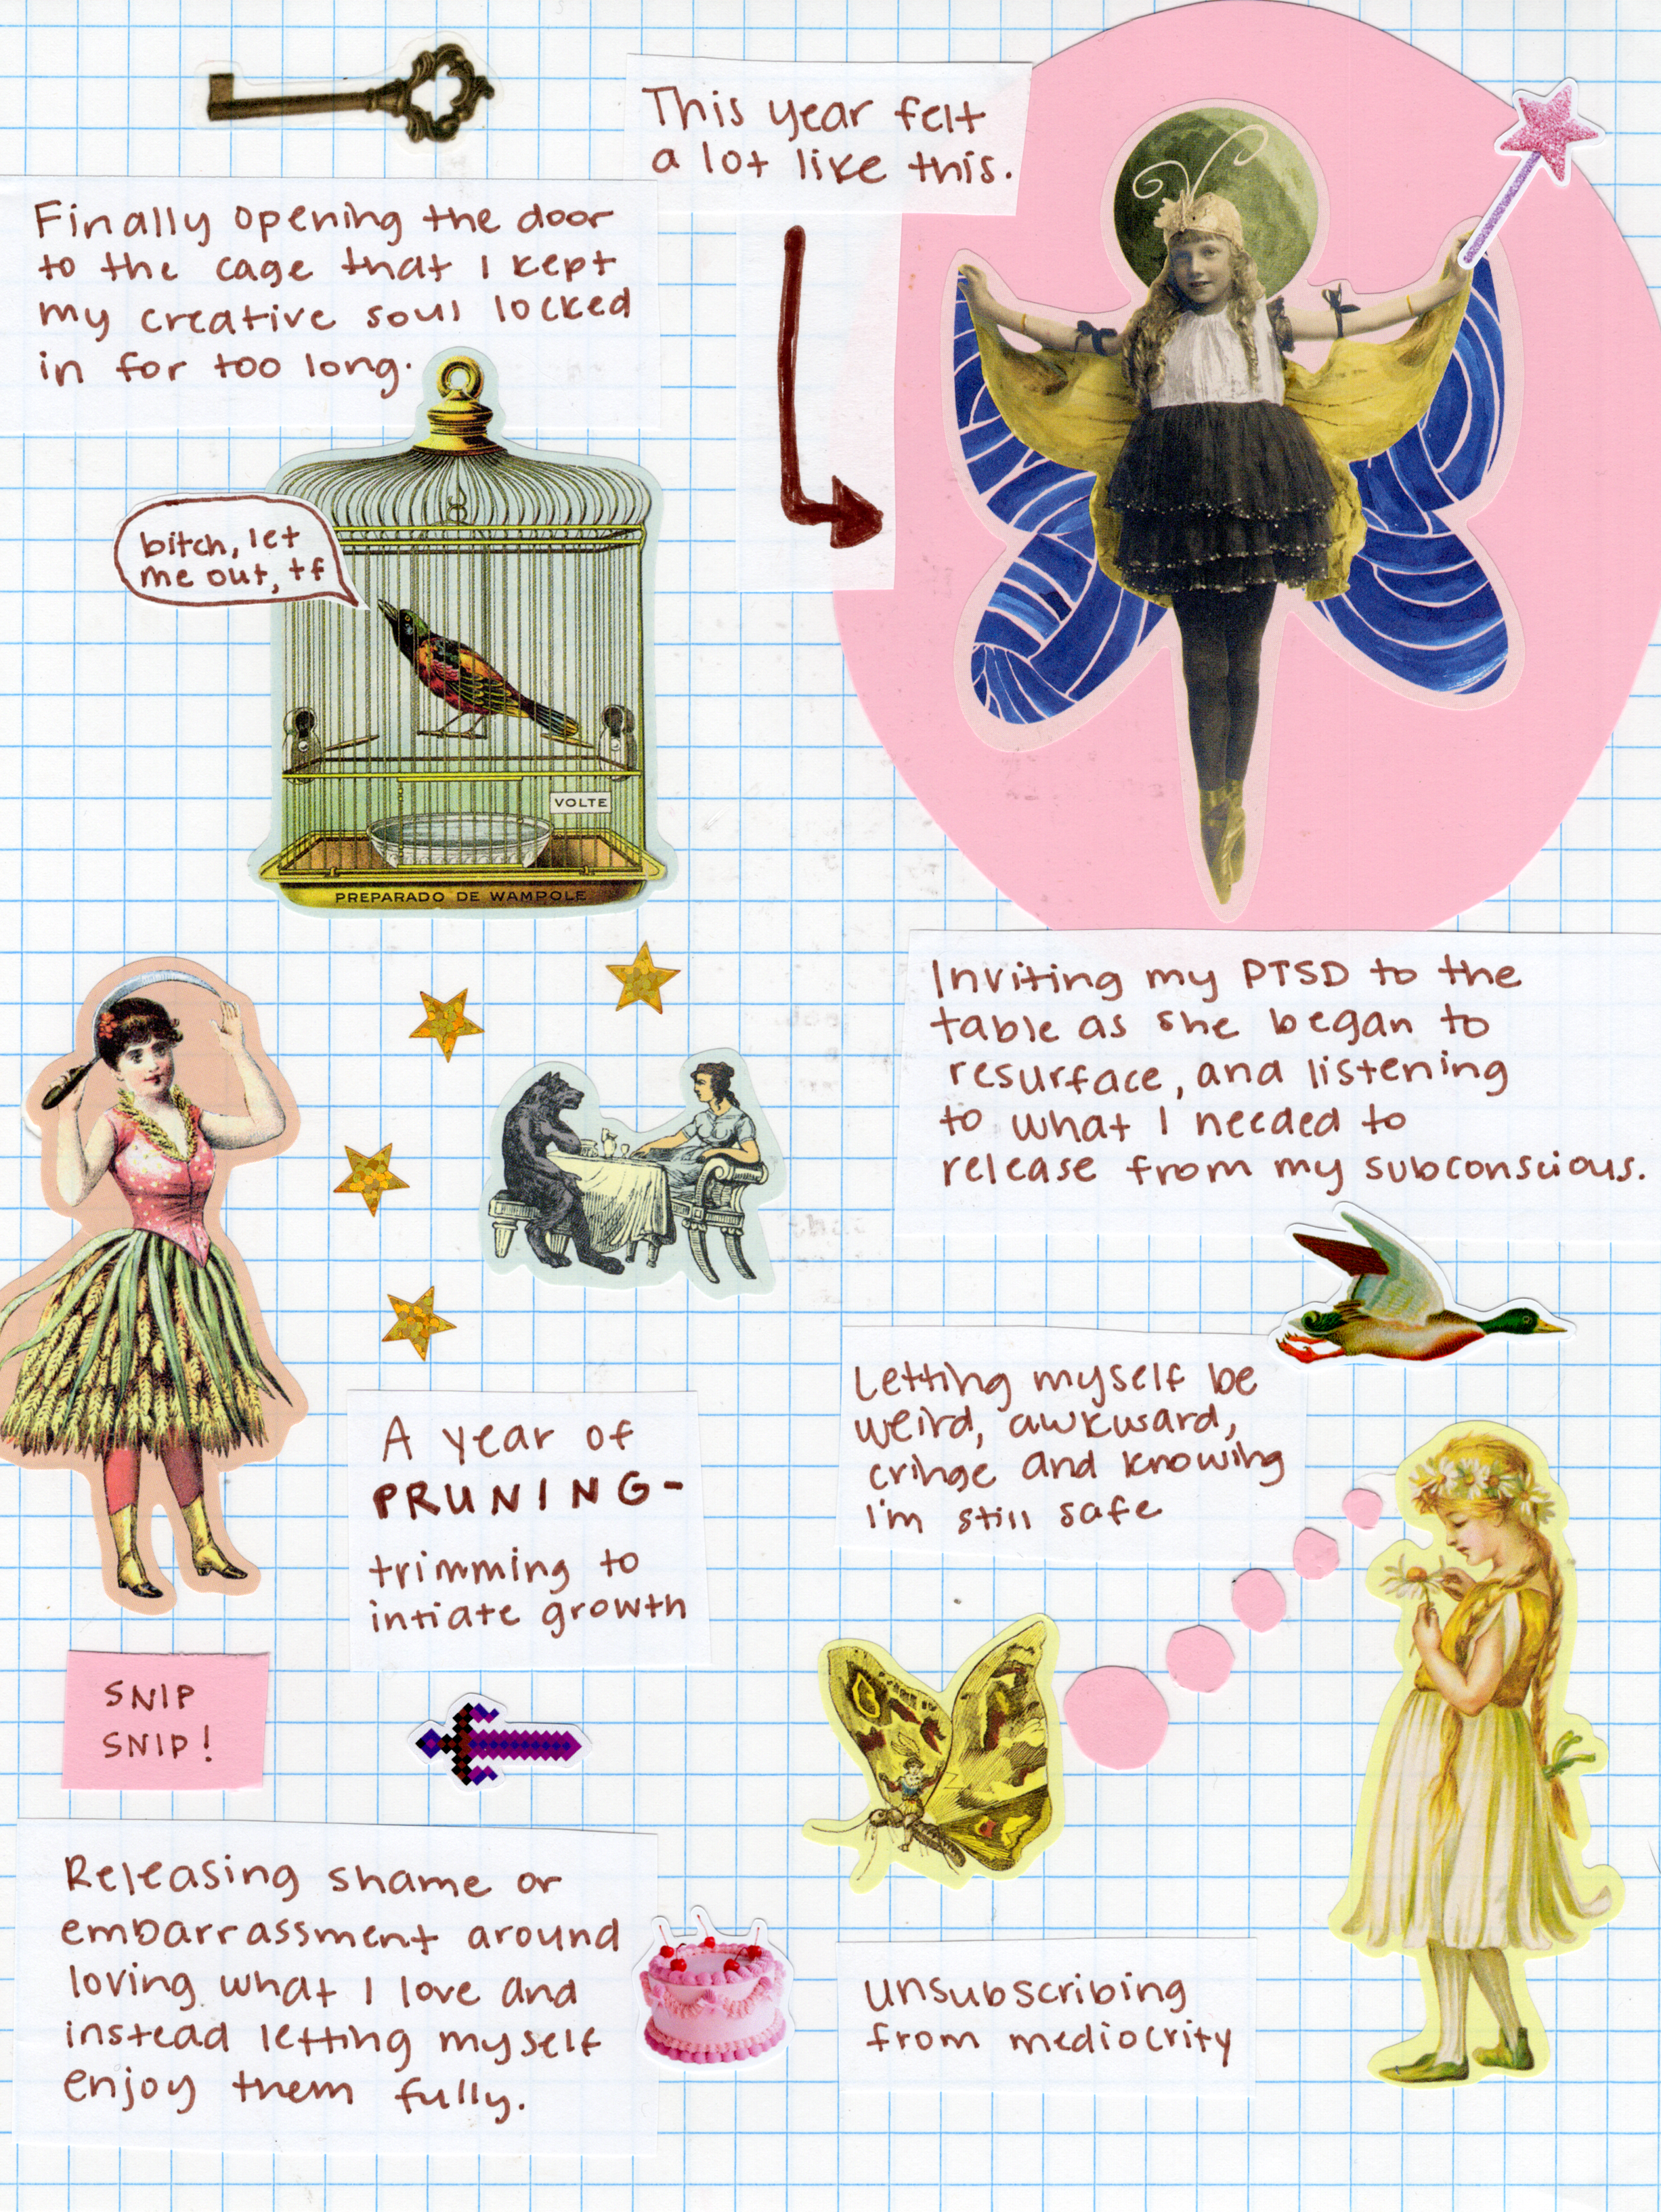 This year felt
a lot like this.
Finally opening the door
to the cage that I kept
my creative soul locked
in for too long.
bitch, let
me out, tf
VOLTE
PREPARADO DE WAMPOLE
Inviting my PTSD to the
table as she began to
resurface, and listening
to what I needed to
release from my subconscious.
A year of
PRUNING-
trimming to
intiate growth
SNIP
SNIP!
Letting myself be
weird, awkward,
cringe and knowing
I'm still safe
Releasing shame or
embarrassment around
loving what I love and
instead letting myself
enjoy them fully.
unsubscribing
from mediocrity